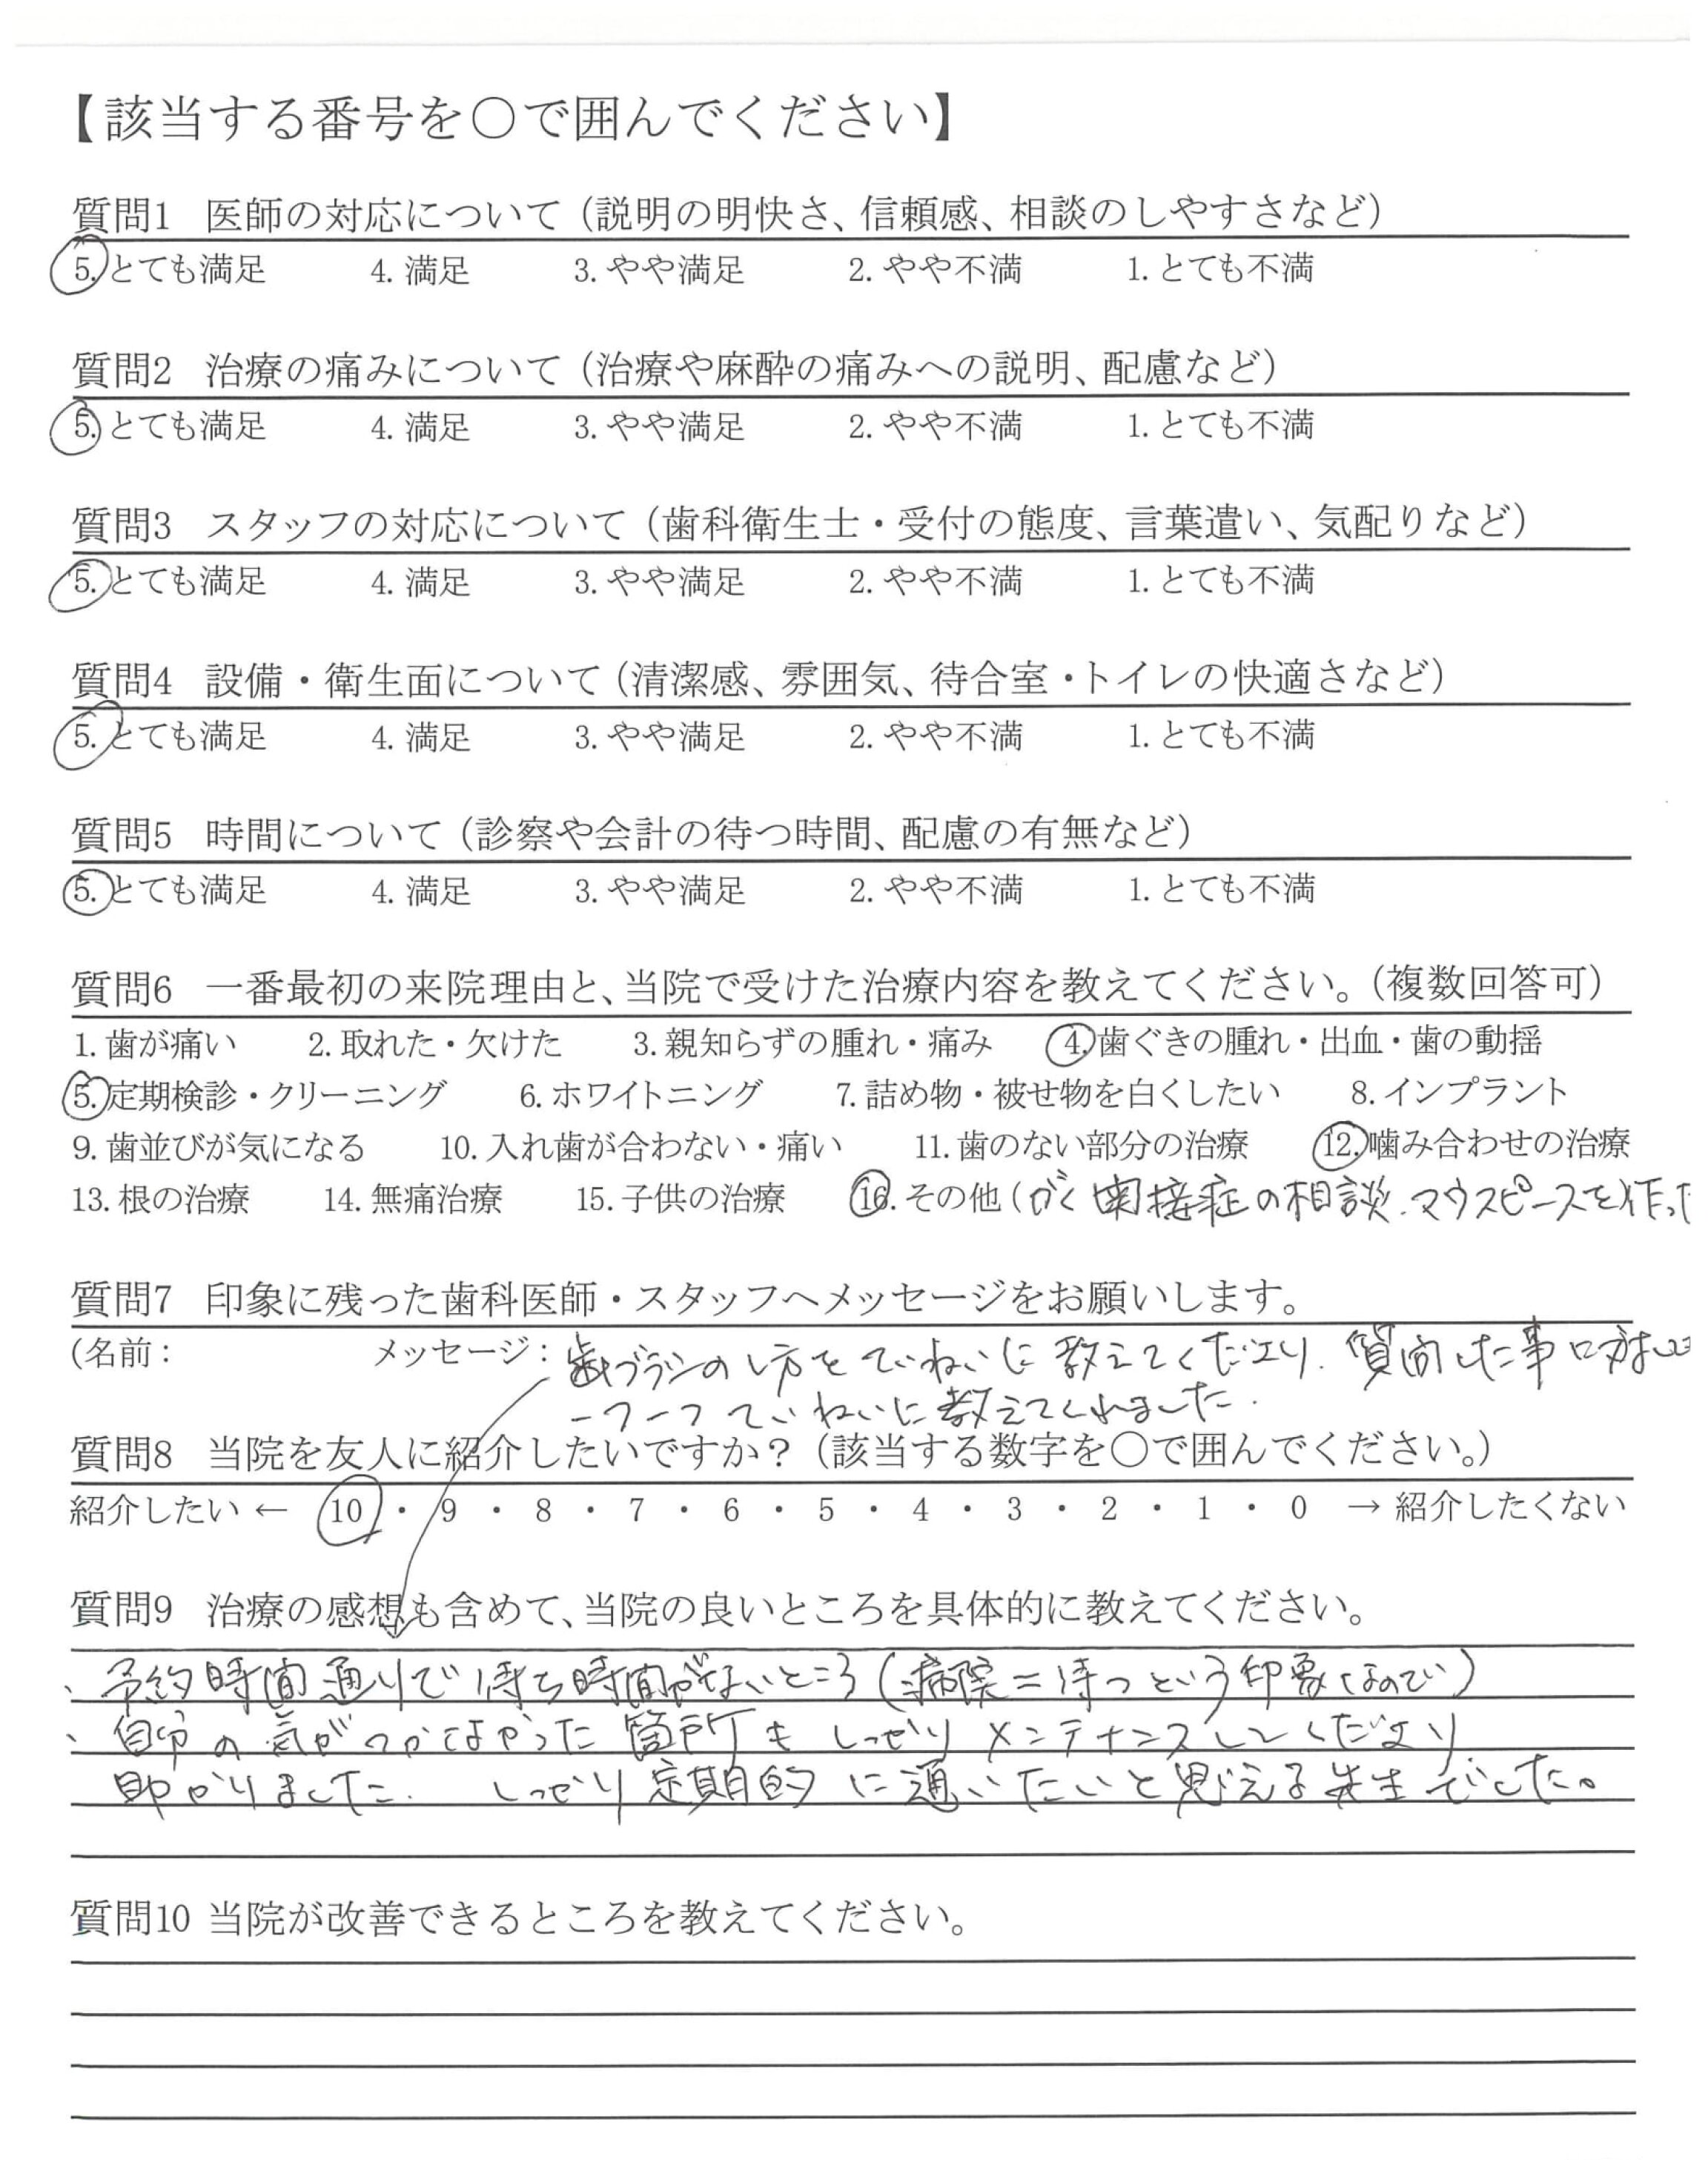 【該当する番号を○で囲んでください】
質問1 医師の対応について（説明の明快さ、信頼感、相談のしやすさなど）
5. とても満足 4. 満足 3. やや満足 2. やや不満 1. とても不満
質問2 治療の痛みについて（治療や麻酔の痛みへの説明、配慮など）
5. とても満足 4. 満足 3. やや満足 2. やや不満 1. とても不満
質問3 スタッフの対応について（歯科衛生士・受付の態度、言葉遣い、気配りなど）
5. とても満足 4. 満足 3. やや満足 2. やや不満 1. とても不満
質問4 設備・衛生面について（清潔感、雰囲気、待合室・トイレの快適さなど）
5. とても満足 4. 満足 3. やや満足 2. やや不満 1. とても不満
質問5 時間について（診察や会計の待つ時間、配慮の有無など）
5. とても満足 4. 満足 3. やや満足 2. やや不満 1. とても不満
質問6 一番最初の来院理由と、当院で受けた治療内容を教えてください。（複数回答可）
1. 歯が痛い 2. 取れた・欠けた 3. 親知らずの腫れ・痛み 4. 歯ぐきの腫れ・出血・歯の動揺
5. 定期検診・クリーニング 6. ホワイトニング 7. 詰め物・被せ物を白くしたい 8. インプラント
9. 歯並びが気になる 10. 入れ歯が合わない・痛い 11. 歯のない部分の治療 12. 噛み合わせの治療
13. 根の治療 14. 無痛治療 15. 子供の治療 16. その他（がく 関接症の相談、マウスピースを作った
質問7 印象に残った歯科医師・スタッフへメッセージをお願いします。
(名前： メッセージ：歯ブラシのし方をていねいに教えてくださり、質問した事に対して
一つ一つていねいに教えてくれました。
質問8 当院を友人に紹介したいですか？（該当する数字を○で囲んでください。）
紹介したい ← 10 ・ 9 ・ 8 ・ 7 ・ 6 ・ 5 ・ 4 ・ 3 ・ 2 ・ 1 ・ 0 → 紹介したくない
質問9 治療の感想も含めて、当院の良いところを具体的に教えてください。
、予約時間通りで待ち時間がないところ（病院＝待つという印象なので）
、自分の気がつかなかった箇所もしっかりメンテナンスしてくださり
助かりました。しっかり定期的に通いたいと思える先生でした。
質問10 当院が改善できるところを教えてください。